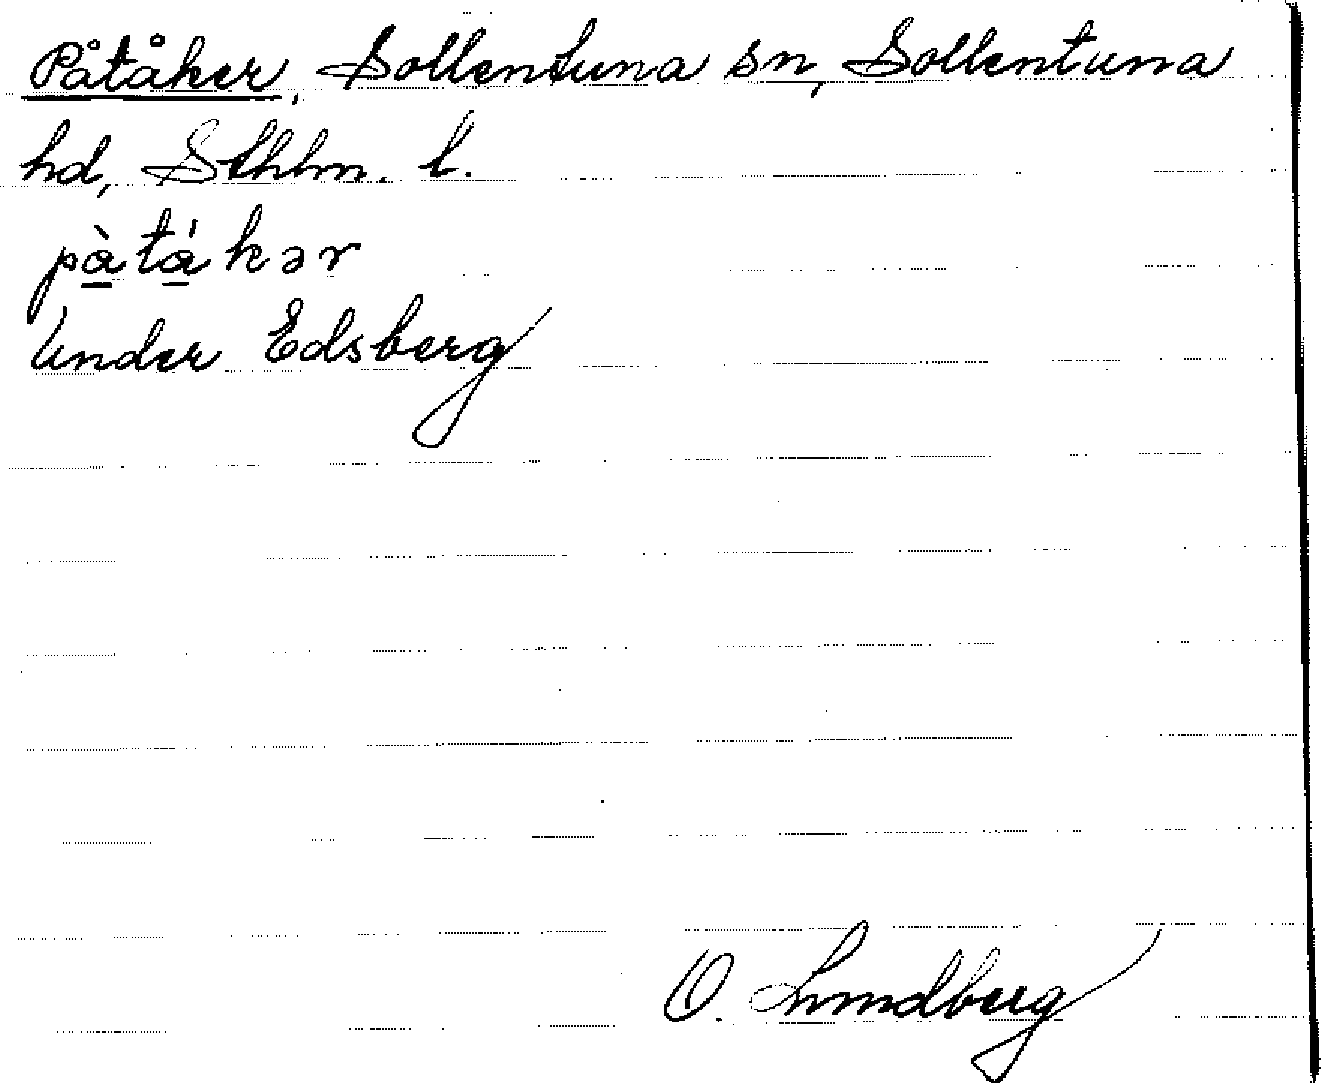 Påtåker, Sollentuna sn, Sollentuna
hd, Sthlm. l.
pàtákər
Under Edsberg
O. Lundberg